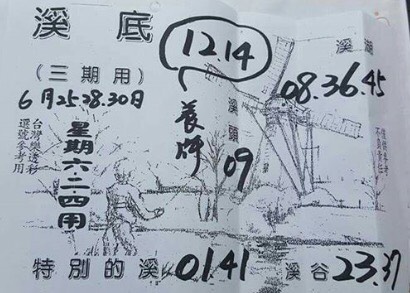 溪底
(三期用)
6月25.28.30日
星期六.二.四用
台灣樂透彩
選號參考用
12.14
養牌
溪頭
09
溪湖
08.36.45
僅供參考
不負責任
特別的溪 01.41
溪谷 23.37